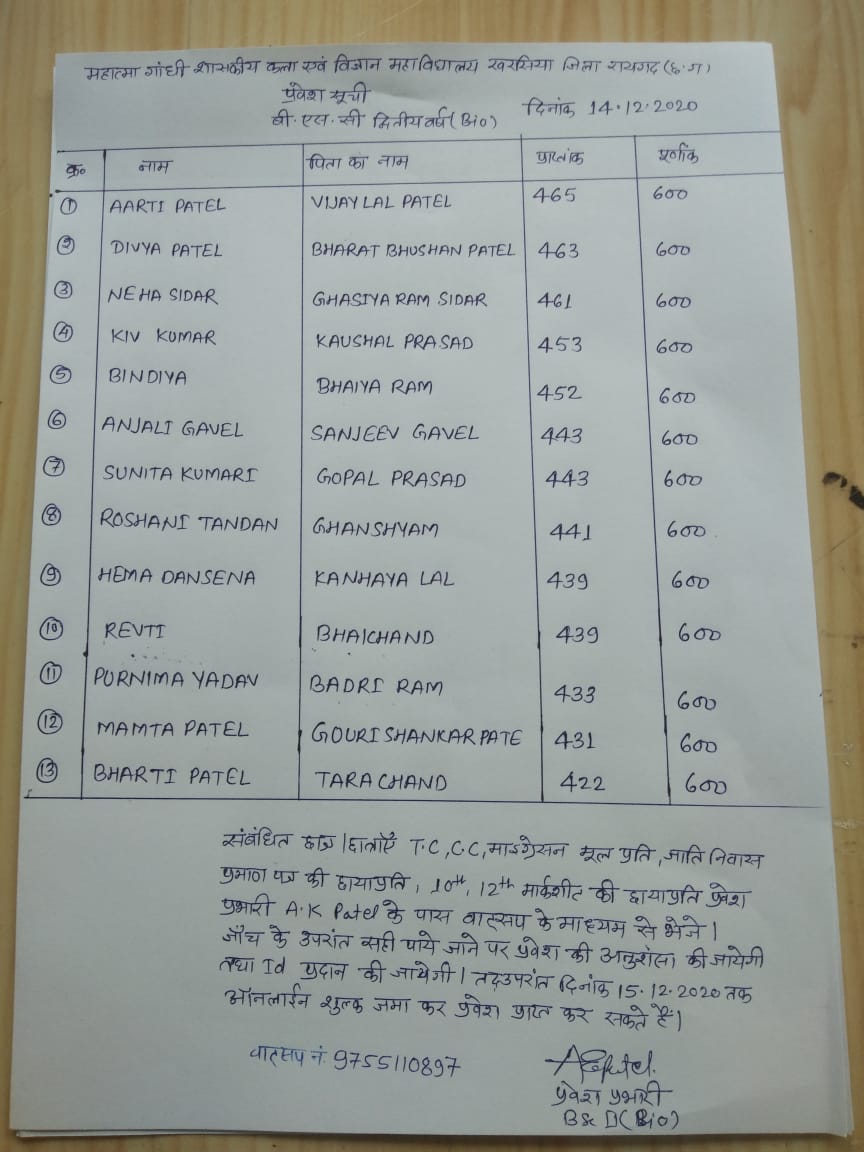 महात्मा गांधी शासकीय कला एवं विज्ञान महाविद्यालय खरसिया जिला रायगढ़ (छ.ग)
प्रवेश सूची
दिनांक 14.12.2020
बी.एस.सी द्वितीय वर्ष (Bio)
क्र० नाम पिता का नाम प्राप्तांक पूर्णांक
① AARTI PATEL VIJAY LAL PATEL 465 600
② DIVYA PATEL BHARAT BHUSHAN PATEL 463 600
③ NEHA SIDAR GHASIYA RAM SIDAR 461 600
④ KIV KUMAR KAUSHAL PRASAD 453 600
⑤ BINDIYA BHAIYA RAM 452 600
⑥ ANJALI GAVEL SANJEEV GAVEL 443 600
⑦ SUNITA KUMARI GOPAL PRASAD 443 600
⑧ ROSHANI TANDAN GHANSHYAM 441 600
⑨ HEMA DANSENA KANHAYA LAL 439 600
⑩ REVTI BHAICHAND 439 600
⑪ PURNIMA YADAV BADRI RAM 433 600
⑫ MAMTA PATEL GOURISHANKAR PATE 431 600
⑬ BHARTI PATEL TARACHAND 422 600
संबंधित छात्र/छात्राएँ T.C, C.C, माइग्रेसन मूल प्रति, जाति निवास
प्रमाण पत्र की छायाप्रति, 10th, 12th मार्कशीट की छायाप्रति प्रवेश
प्रभारी A.K Patel के पास वाट्सप के माध्यम से भेजे।
जाँच के उपरांत सही पाये जाने पर प्रवेश की अनुशंसा की जायेगी
तथा Id प्रदान की जायेगी। तद्उपरांत दिनांक 15.12.2020 तक
ऑनलाईन शुल्क जमा कर प्रवेश प्राप्त कर सकते हैं।
वाट्सप नं. 9755110897
प्रवेश प्रभारी
BSc II (Bio)